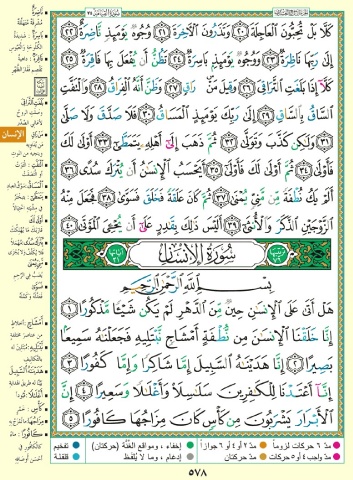 كَلَّا بَلْ تُحِبُّونَ ٱلْعَاجِلَةَ ٢٠ وَتَذَرُونَ ٱلْـَٔاخِرَةَ ٢١ وُجُوهٌ يَوْمَئِذٍ نَّاضِرَةٌ ٢٢
إِلَىٰ رَبِّهَا نَاظِرَةٌ ٢٣ وَوُجُوهٌ يَوْمَئِذٍۭ بَاسِرَةٌ ٢٤ تَظُنُّ أَن يُفْعَلَ بِهَا فَاقِرَةٌ ٢٥
كَلَّآ إِذَا بَلَغَتِ ٱلتَّرَاقِىَ ٢٦ وَقِيلَ مَنْ ۜ رَاقٍ ٢٧ وَظَنَّ أَنَّهُ ٱلْفِرَاقُ ٢٨ وَٱلْتَفَّتِ
ٱلسَّاقُ بِٱلسَّاقِ ٢٩ إِلَىٰ رَبِّكَ يَوْمَئِذٍ ٱلْمَسَاقُ ٣٠ فَلَا صَدَّقَ وَلَا صَلَّىٰ
٣١ وَلَٰكِن كَذَّبَ وَتَوَلَّىٰ ٣٢ ثُمَّ ذَهَبَ إِلَىٰٓ أَهْلِهِۦ يَتَمَطَّىٰٓ ٣٣ أَوْلَىٰ لَكَ
فَأَوْلَىٰ ٣٤ ثُمَّ أَوْلَىٰ لَكَ فَأَوْلَىٰٓ ٣٥ أَيَحْسَبُ ٱلْإِنسَٰنُ أَن يُتْرَكَ سُدًى ٣٦
أَلَمْ يَكُ نُطْفَةً مِّن مَّنِىٍّ يُمْنَىٰ ٣٧ ثُمَّ كَانَ عَلَقَةً فَخَلَقَ فَسَوَّىٰ ٣٨ فَجَعَلَ مِنْهُ
ٱلزَّوْجَيْنِ ٱلذَّكَرَ وَٱلْأُنثَىٰٓ ٣٩ أَلَيْسَ ذَٰلِكَ بِقَٰدِرٍ عَلَىٰٓ أَن يُحْـِۧىَ ٱلْمَوْتَىٰ ٤٠
سُورَةُ الإِنسَانِ
بِسْمِ ٱللَّهِ ٱلرَّحْمَٰنِ ٱلرَّحِيمِ
هَلْ أَتَىٰ عَلَى ٱلْإِنسَٰنِ حِينٌ مِّنَ ٱلدَّهْرِ لَمْ يَكُن شَيْـًٔا مَّذْكُورًا ١
إِنَّا خَلَقْنَا ٱلْإِنسَٰنَ مِن نُّطْفَةٍ أَمْشَاجٍ نَّبْتَلِيهِ فَجَعَلْنَٰهُ سَمِيعًۢا
بَصِيرًا ٢ إِنَّا هَدَيْنَٰهُ ٱلسَّبِيلَ إِمَّا شَاكِرًا وَإِمَّا كَفُورًا ٣
إِنَّآ أَعْتَدْنَا لِلْكَٰفِرِينَ سَلَٰسِلَا۟ وَأَغْلَٰلًا وَسَعِيرًا ٤ إِنَّ
ٱلْأَبْرَارَ يَشْرَبُونَ مِن كَأْسٍ كَانَ مِزَاجُهَا كَافُورًا ٥
الإنسان
مدّ ٦ حركات لزوماً
مدّ ٢ أو ٤ أو ٦ جوازاً
إخفاء، ومواقع الغنّة (حركتان)
تفخيم
مدّ واجب ٤ أو ٥ حركات
مدّ حركتان
إدغام، وما لا يُلفظ
قلقلة
٥٧٨